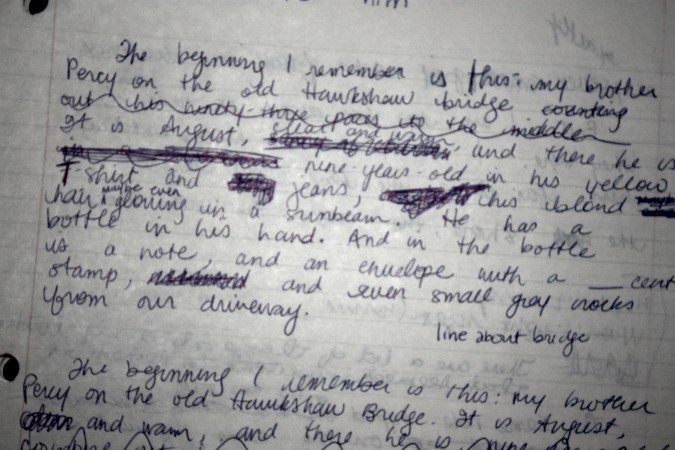 The beginning I remember is this: my brother
Percy on the old Hawkshaw bridge counting
out his ninety-three paces to the middle
It is August, clear and warm, and there he is
nine-years-old in his yellow
T-shirt and jeans, his blond
hair maybe even glowing in a sunbeam. He has a
bottle in his hand. And in the bottle
is a note, and an envelope with a __ cent
stamp, and seven small gray rocks
from our driveway.
line about bridge
The beginning I remember is this: my brother
Percy on the old Hawkshaw Bridge. It is August,
and warm, and there he is